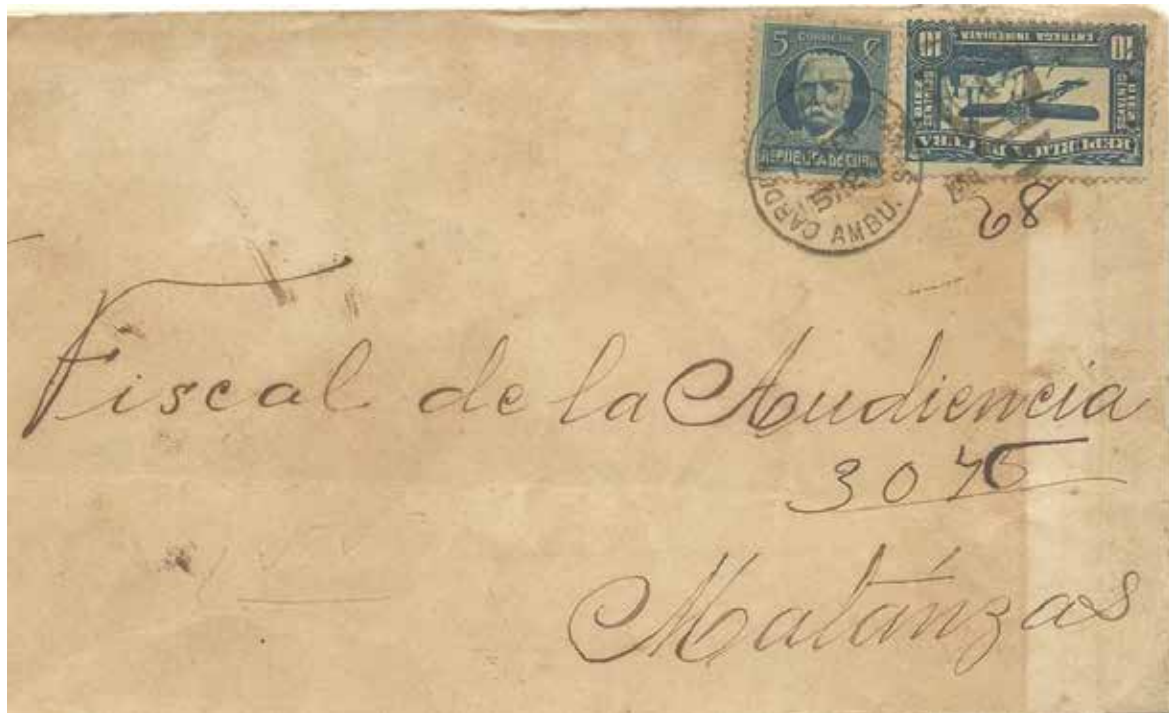 5 CORREOS ¢
REPUBLICA DE CUBA
10 ENTREGA INMEDIATA 10
DIEZ CENTAVOS
REPUBLICA DE CUBA
AMBU.
68
Fiscal de la Audiencia
3045
Matánzas